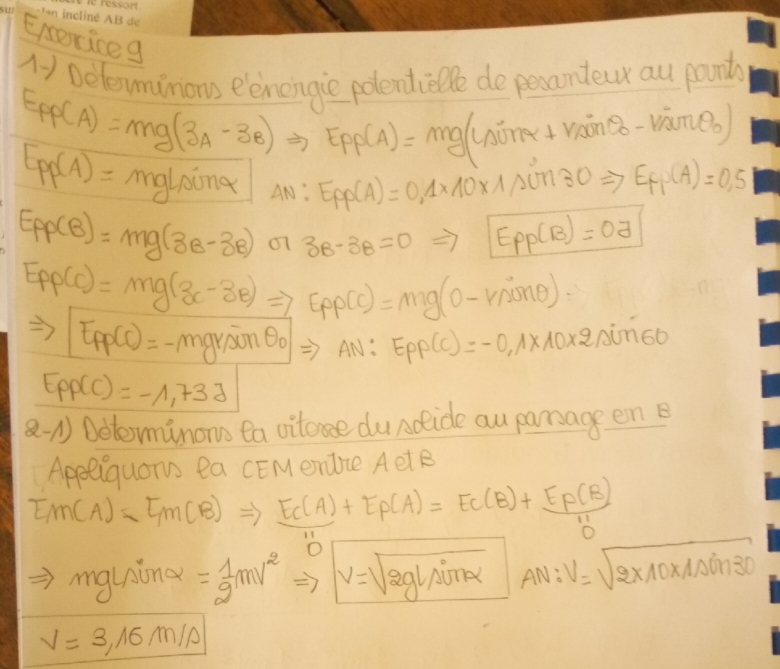 le ressort.
plan incliné AB de
Exercice 9
1-) Déterminons l'énergie potentielle de pesanteur au points
Epp(A) = mg(zA - zB) ⇒ Epp(A) = mg(Lsinα + rsinθ0 - rsinθ0)
Epp(A) = mgLsinα AN: Epp(A) = 0,1×10×1 sin30 ⇒ Epp(A) = 0,5
Epp(B) = mg(zB - zB) or zB - zB = 0 ⇒ Epp(B) = 0J
Epp(C) = mg(zC - zB) ⇒ Epp(C) = mg(0 - rsinθ)
⇒ Epp(C) = -mgrsinθ0 ⇒ AN: Epp(C) = -0,1×10×2 sin60
Epp(C) = -1,73J
2-1) Déterminons la vitesse du solide au passage en B
Appliquons la CEM entre A et B
Em(A) = Em(B) ⇒ Ec(A) + Ep(A) = Ec(B) + Ep(B)
=0 =0
⇒ mgLsinα = 1/2 mV² ⇒ V = √2gLsinα AN: V = √2×10×1 sin30
V = 3,16 m/s